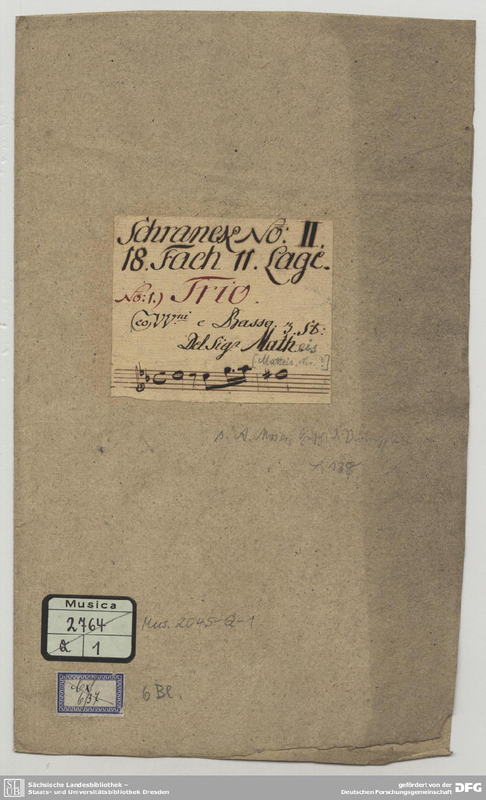 Schranck No: II.
18. Fach 11. Lage.
No: 1.) Trio.
co VV.ni e Basso. 3. St:
Del Sig.r Matheis
[Matteis, Nic. ?]
s. A. Moser,
S. 138
Musica
2764
Q 1
Mus. 2045-Q-1
6 Bl.
SLUB
Sächsische Landesbibliothek –
Staats- und Universitätsbibliothek Dresden
gefördert von der
Deutschen Forschungsgemeinschaft
DFG